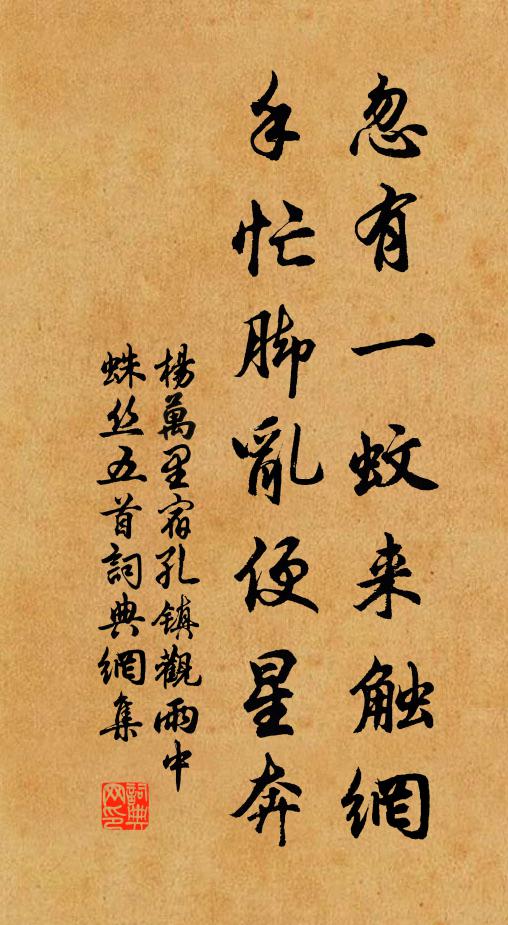 忽有一蚊来触網
手忙脚亂便星奔
楊萬里宿孔镇觀雨中
蛛丝五首詞典網集
詞典
网印